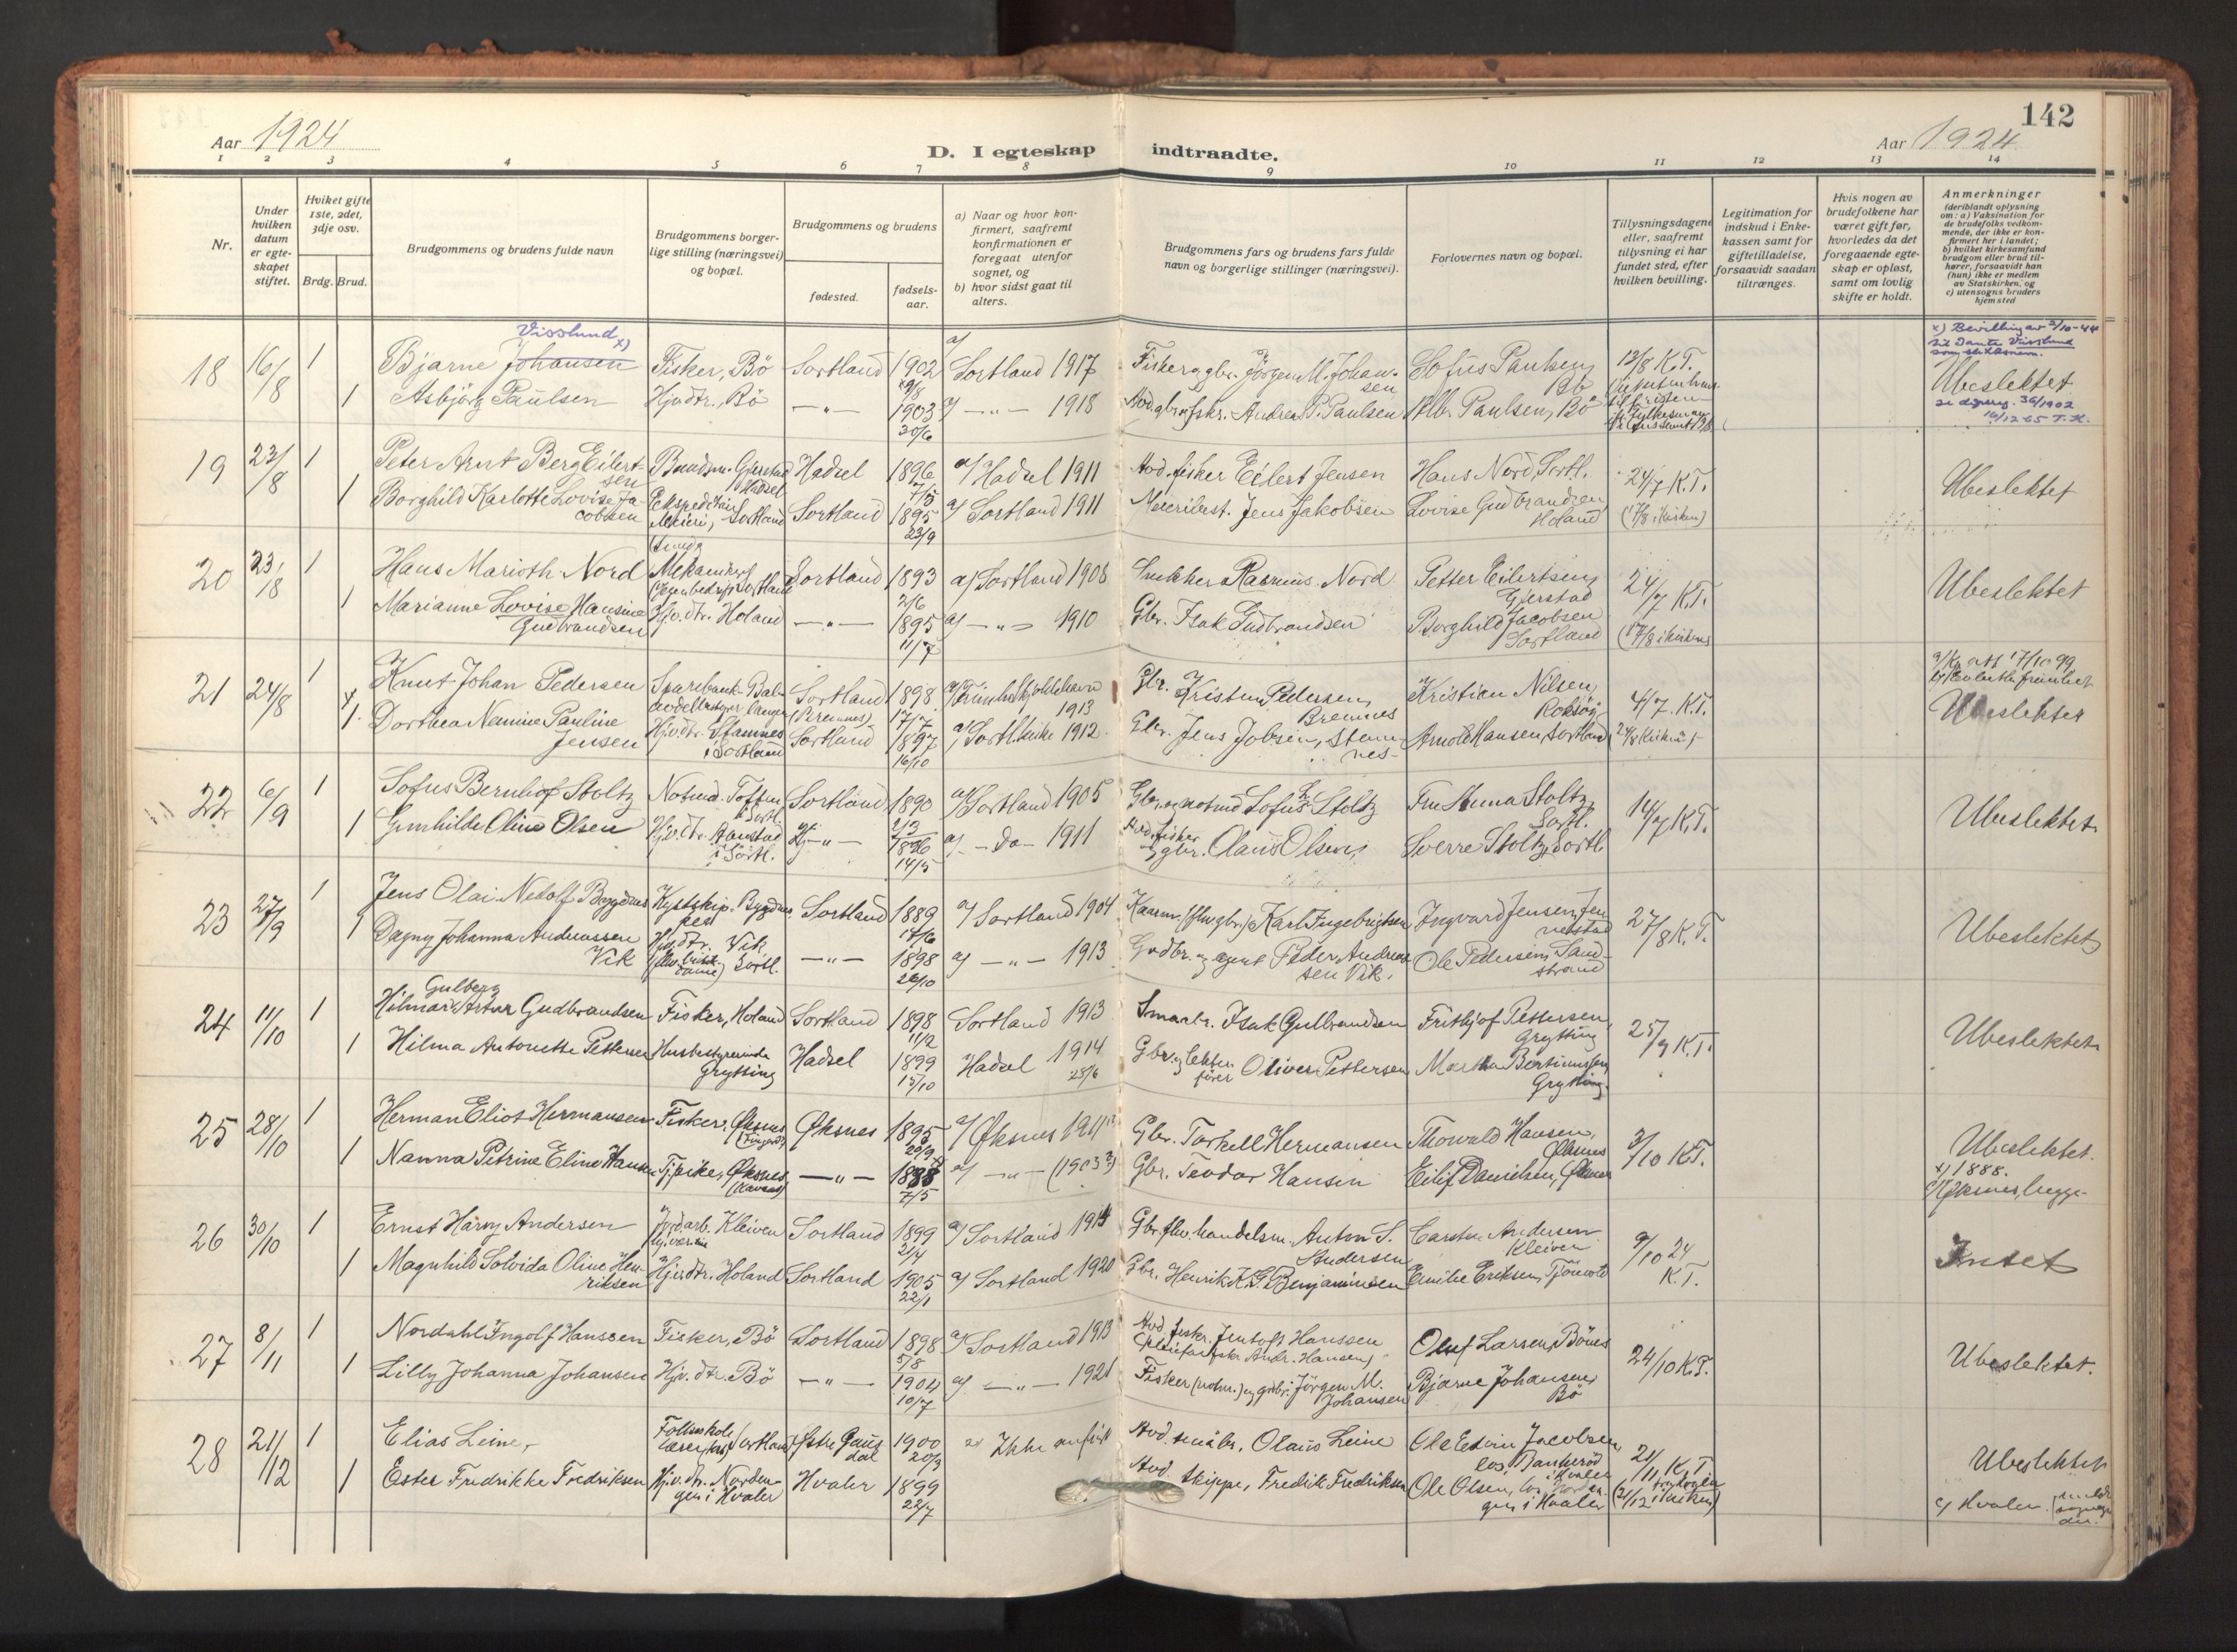 142
Aar 1924
D. I egteskap indtraadte.
Aar 1924
1 2 3 4 5 6 7 8 9 10 11 12 13 14
Nr.
Under hvilken datum er egteskapet stiftet.
Hvilket gifte 1ste, 2det, 3dje osv.
Brdg. Brud.
Brudgommens og brudens fulde navn
Brudgommens borgerlige stilling (næringsvei) og bopæl.
Brudgommens og brudens
fødested.
fødselsaar.
a) Naar og hvor konfirmert, saafremt konfirmationen er foregaat utenfor sognet, og
b) hvor sidst gaat til alters.
Brudgommens fars og brudens fars fulde navn og borgerlige stillinger (næringsvei).
Forlovernes navn og bopæl.
Tillysningsdagene eller, saafremt tillysning ei har fundet sted, efter hvilken bevilling.
Legitimation for indskud i Enkekassen samt for giftetilladelse, forsaavidt saadan tiltrænges.
Hvis nogen av brudefolkene har været gift før, hvorledes da det foregaaende egteskap er opløst, samt om lovlig skifte er holdt.
Anmerkninger
(deriblandt oplysning om: a) Vaksination for de brudefolks vedkommende, der ikke er konfirmert her i landet; b) hvilket kirkesamfund brudgom eller brud tilhører, forsaavidt han (hun) ikke er medlem av Statskirken, og c) utensogns bruders hjemsted
Visslund x)
18 16/8 1 Bjarne Johansen Fisker, Bö Sortland 1902 29/8 a/ Sortland 1917 Fisker og gbr. Jörgen M. Johansen Sofus Paulsen, Bö 12/8 K.T. Ubeslektet
1 Asbjörg Paulsen Hjvdtr., Bö —"— 1903 30/6 a/ —"— 1918 Andreas P. Paulsen Paulsen, Bö
x) Bevilling av 2/10-44
36/1902
16/12 65 T.H.
19 23/8 1 Peter Arnt Berg Eilertsen Gjerstad Hadsel Hadsel 1896 7/5 a/ Hadsel 1911 Avd. fisker Eilert Jensen Hans Nord, Sortl. 24/7 K.T. Ubeslektet
1 Borghild Karlotte Lovise Jacobsen Meieri, Sortland Sortland 1895 23/9 a/ Sortland 1911 Meieribest. Jens Jakobsen Lovise Gudbrandsen Holand (17/8 i kirken)
20 23/8 1 Hans Marioth Nord Mekaniker Sortland Sortland 1893 2/6 a/ Sortland 1908 Snekker Rasmus Nord Petter Eilertsen, Gjerstad 24/7 K.T. Ubeslektet
1 Marianne Lovise Hansine Gudbrandsen Hjv.dtr. Holand —"— 1895 11/7 a/ —"— 1910 Gbr. Isak Gudbrandsen Borghild Jacobsen Sortland (17/8 i kirken)
21 24/8 1 Knut Johan Pedersen Sortland (Bremnes) 1898 17/7 1913 Gbr. Kristen Pedersen, Bremnes Kristian Nilsen, Roksöy 4/7 K.T. Ubeslektet
1 Dorthea Nennine Pauline Jensen Hjv.dtr. Stamnes i Sortland Sortland 1897 16/10 a/ Sortl. kirke 1912 Gbr. Jens Jobsen, Stamnes Arnold Hansen, Sortland
22 6/9 1 Sofus Bernhof Stoltz Notmd. Toften Sortl. Sortland 1890 a/ Sortland 1905 Gbr. og notmd Sofus Stoltz Fru Anna Stoltz, Sortl. 14/7 K.T. Ubeslektet
1 Gunhilde Oline Olsen Hjv.dtr. Aanstad i Sortl. —"— 1896 14/5 a/ — Do — 1911 Avd. fisker og gbr. Olaus Olsen, Sverre Stoltz, Sortl
23 27/9 1 Jens Olai Netolf Bygdnes Kystskip. Bygdnes Sortland 1889 17/6 a/ Sortland 1904 Karl Ingebrigtsen Ingvard Jensen, Jennestad 27/8 K.T. Ubeslektet
1 Dagny Johanna Andreassen Vik Hjv.dtr. Vik Sortl. —"— 1898 26/10 a/ —"— 1913 Gardbr. og agent Peder Andreassen Vik. Ole Pedersen, Sandstrand
24 11/10 1 Gulberg Hilmar Artur Gudbrandsen Fisker, Holand Sortland 1898 11/2 Sortland 1913 Smaabr. Isak Gulbrandsen Fritjof Pettersen, Grytting 25/9 K.T. Ubeslektet
1 Hilma Antonette Pettersen Husbestyrerinde Grytting Hadsel 1899 15/10 Hadsel 1914 28/6 Gbr. og Oliver Pettersen Martha Bertinussen, Grytting
25 28/10 1 Herman Eliot Hermansen Fisker, Øksnes Øksnes 1895 20/9 a/ Øksnes 1911 Gbr. Torkell Hermansen Thorvald Hansen, Øksnes 3/10 K.T. Ubeslektet.
1 Nanna Petrine Eline Hansen Tjpike, Øksnes —"— 1888 7/5 a/ —"— (1903?) Gbr. Teodor Hansen Eilif Danielsen, Øksnes x) 1888. c/ Øksnes, begge
26 30/10 1 Ernst Harry Andersen Jordarb. Kleiven Sortland 1899 2/4 a/ Sortland 1914 Gbr. fhv. handelsm. Anton S. Andersen Carsten Andersen Kleiven 9/10 24 K.T. Intet
1 Magnhild Solvida Oline Henriksen Hjv.dtr. Holand Sortland 1905 22/1 a/ Sortland 1920 Gbr. Henrik K. G. Benjaminsen Emilie Eriksen,
27 8/11 1 Nordahl Ingolf Hanssen Fisker, Bö Sortland 1898 5/8 a/ Sortland 1913 Avd. fiskr. Jentoft Hanssen Oluf Larsen, Bönes 24/10 K.T. Ubeslektet.
1 Lilly Johanna Johansen Hjv.dtr. Bö —"— 1904 10/7 a/ —"— 1921 Fisker (notm.) og gbr. Jörgen M. Johansen Bjarne Johansen, Bö
28 21/12 1 Elias Leine, Folkeskolelærer Sortland Østre Gausdal 1900 20/3 Ikke anfört Avd. smabr. Olaus Leine Ole Edvin Jacobsen, los, i Hvaler 21/11 K.T. Ubeslektet
1 Ester Fredrikke Fredriksen Hjv.dtr. Nordengen i Hvaler Hvaler 1899 22/7 Avd. skipper, Fredrik Fredriksen Ole Olsen, i Hvaler (21/12 i kirken) c/ Hvaler